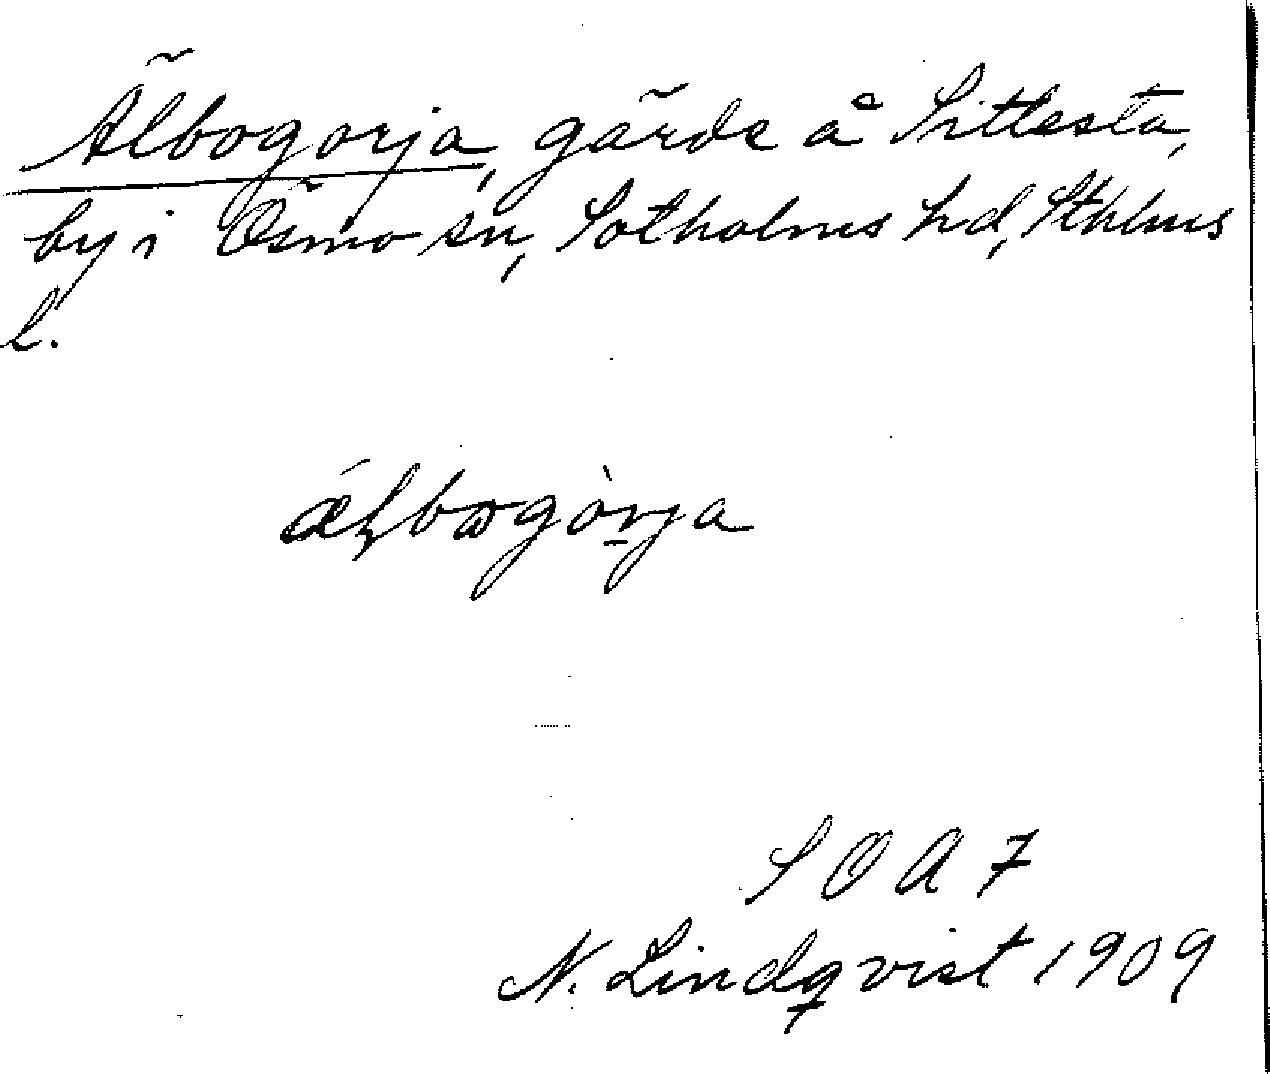 Älbogorja, gärde å Sittesta,
by i Ösmo sn, Sotholms hd, Sthlms
l.
ǽlbogòrja
S O A 7
N. Lindqvist 1909